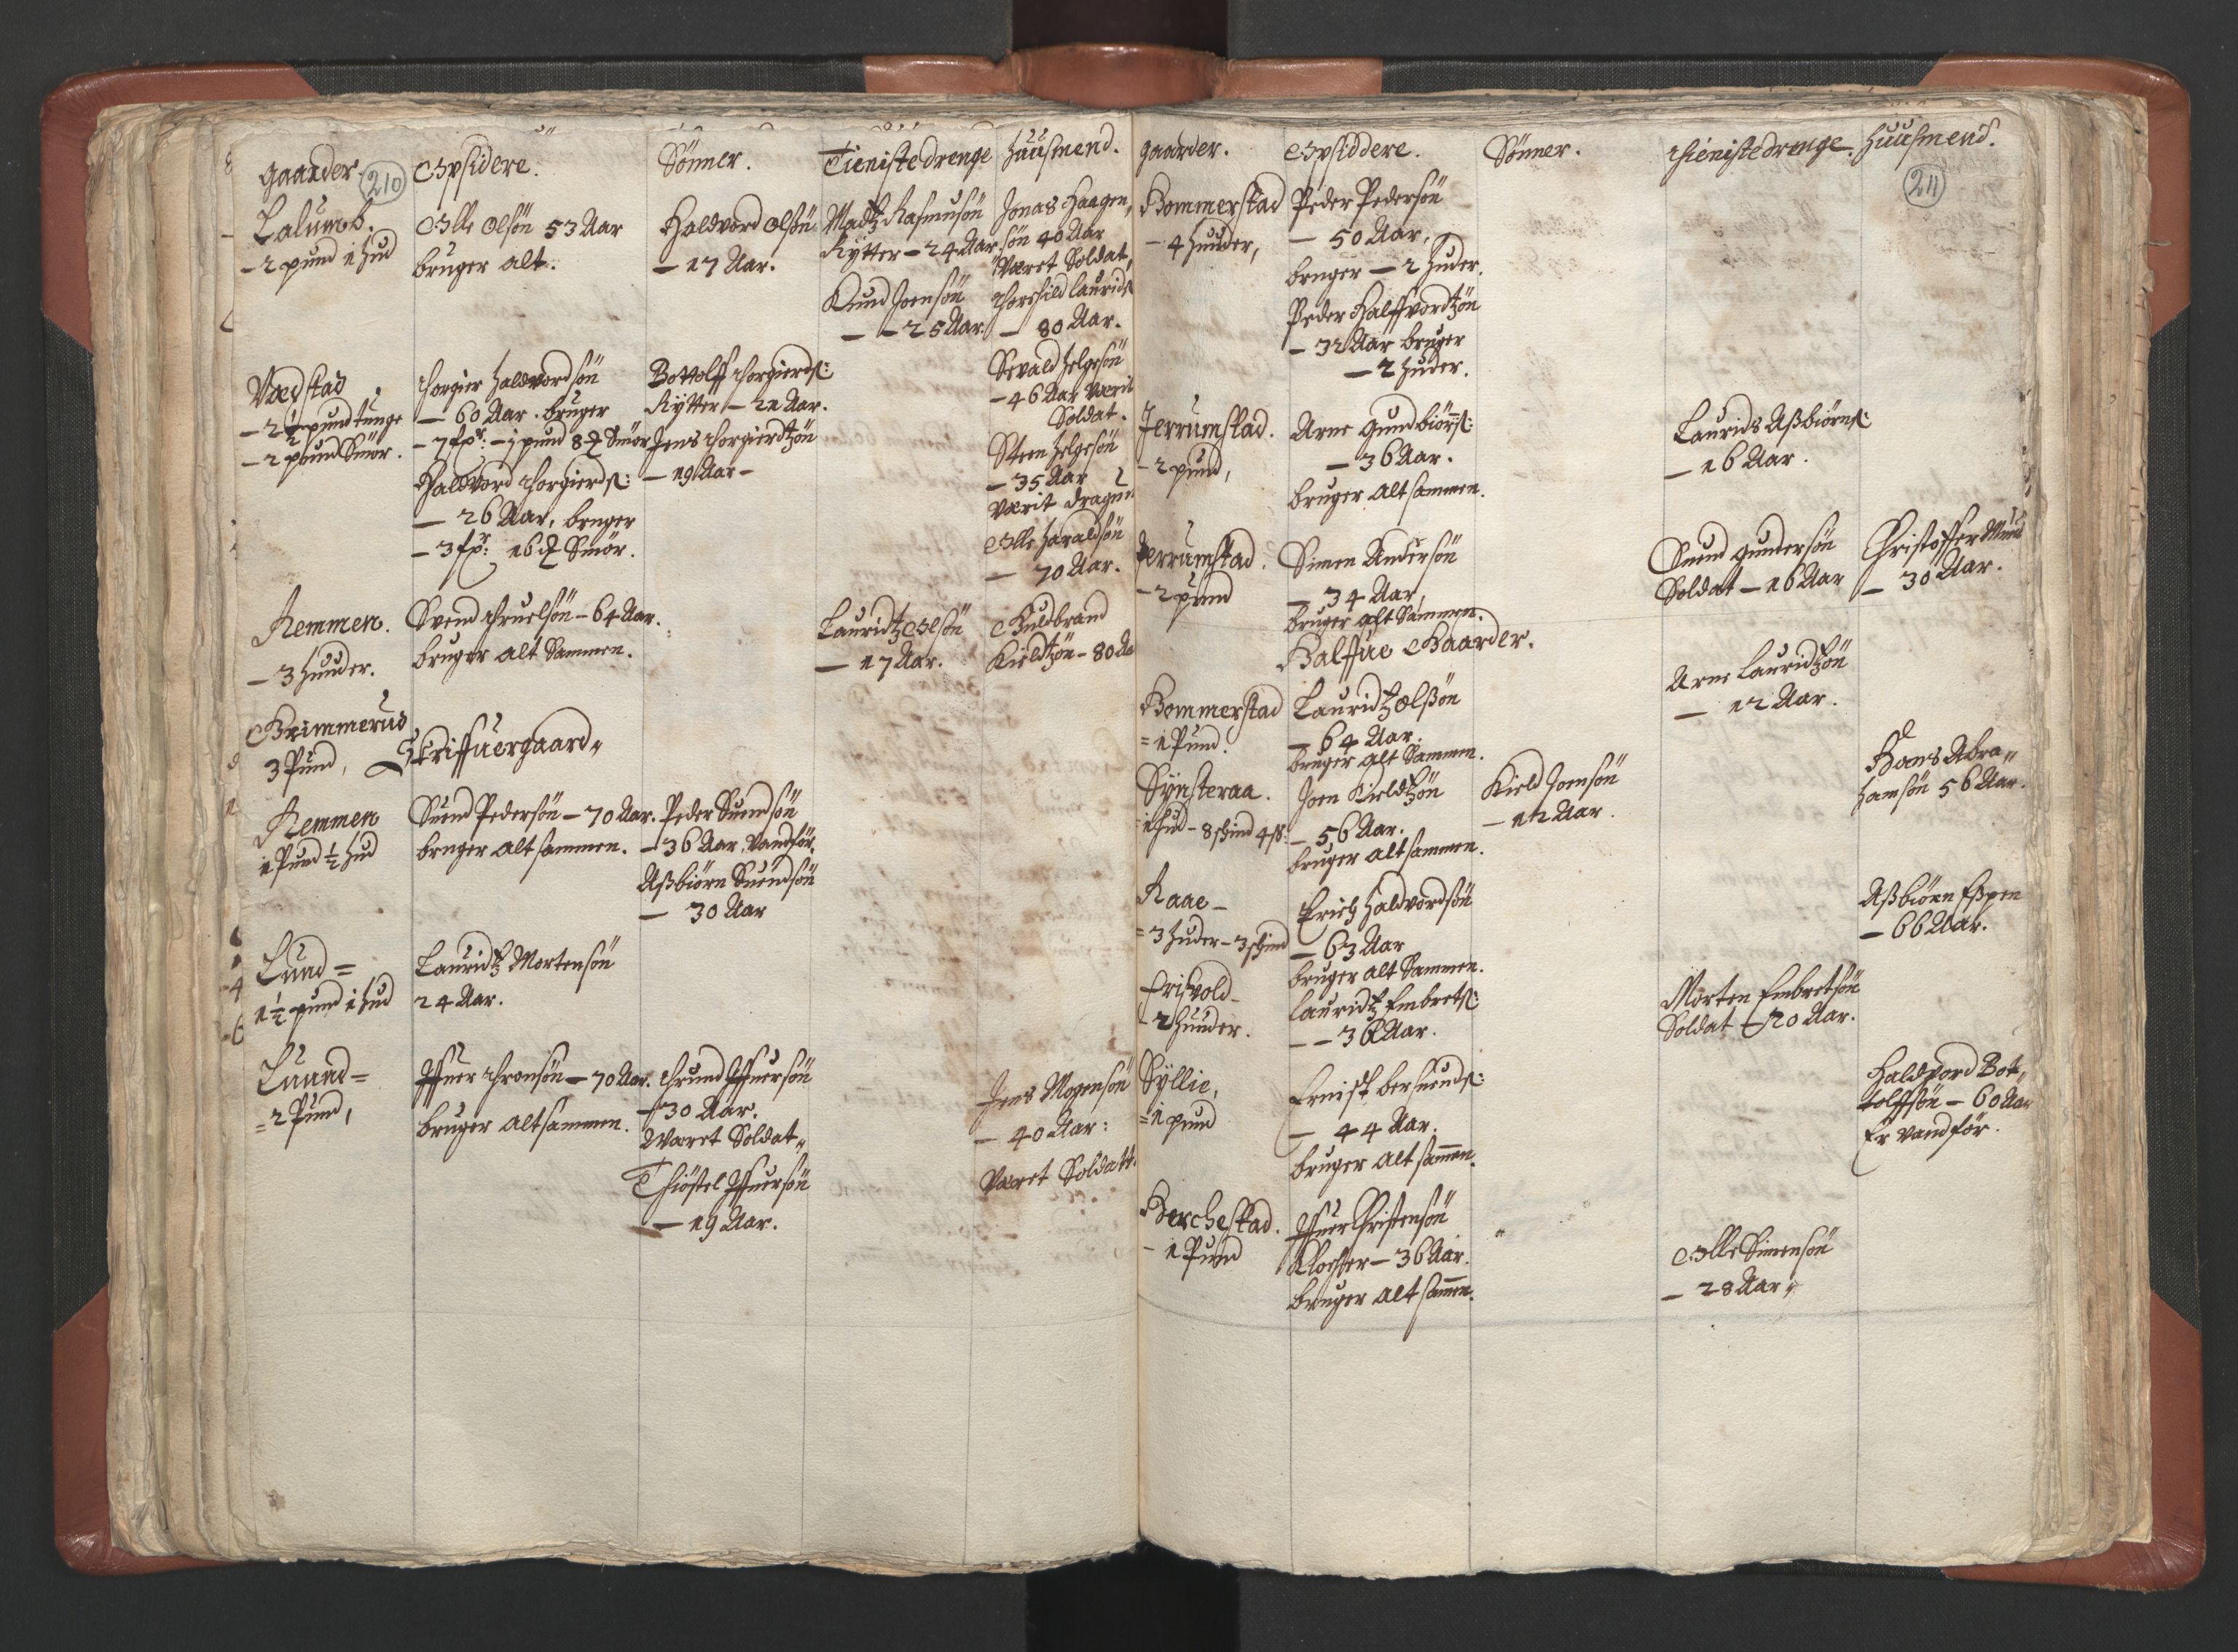 Gaarder.
210
Opsidere.
Sønner.
Tienistedrenge
Huusmend.
Lalumb.
- 2 pund 1 hud
Olle Olsön 53 Aar
bruger alt.
Haldvord Olsön
- 17 Aar.
Madtz Rasmusön
Rÿtter - 24 Aar.
Knud Joensön
- - 25 Aar.
Jonas Haagen,
sön 40 Aar
Været Soldat,
Thorchild Laurids
- 80 Aar.
Sevald Helgesön
- 46 Aar Værit
Soldat.
Steen Helgesön
- 35 Aar
Værit dragun
Olle Haraldsön
- 70 Aar.
- 2 ½ pund tunge
- 2 pound Smör.
Thorgier Haldvordsön
- 60 Aar. bruger
- 7 fpr: - 1 pund 8 ℔ Smör
Haldvord Thorgierds:
- 26 Aar, bruger
- 3 fpr: 16 ℔ Smör.
Bottolff Thorgierds:
Rÿtter - 21 Aar.
Jens Thorgierdtzön
- 19 Aar -
Remmen.
- 3 Huuder.
Svend Thruelsön - 64 Aar.
bruger alt Sammen.
Lauridtz Olsön
- 17 Aar.
Gulbrand
Kieldtzön - 80 Aa
Grimmerud
3 Pund,
Skriffuergaard"
Remmen
1 Pund ½ hud
Suend Pedersön - 70 Aar.
bruger alt sammen.
Peder Suendsön
- 36 Aar. Vandför.
Aßbiörn Suendsön
- 30 Aar
Lund =
1 ½ pund 1 hud
Lauridtz Mortensön
24 Aar.
Luund =
= 2 Pund,
Iffuer Thronsön - 70 Aar.
bruger alt sammen.
Thrund Iffuersön
- 30 Aar.
Waaret Soldat"
Thiöstel Iffuersön
- 19 Aar.
Jens Mogensön
- 40 Aar:
Været Soldatt.
Gaarder.
Opsiddere.
Sönner.
Thienistedrenge.
Huusmend.
211
Bommerstad
- 4 Huuder,
Peder Pedersön
- 50 Aar,
bruger - 2 Huder.
Peder Halffvordtzön
- 32 Aar bruger
- 2 Huder.
Jerrumstad.
- 2 pund,
Arne Gundbiörns:
- 36 Aar.
bruger alt sammen.
Laurids Aßbiörns:
- 16 Aar.
Jerrumstad.
- 2 pund
Simen Andersön
- 34 Aar,
bruger alt Sammen.
Suend Gundersön
Soldat - 16 Aar
Christoffer
- 30 Aar.
Halffue Gaarder.
Bommerstad
= 1 Pund.
Lauridtz Olßön
- 64 Aar.
bruger alt Sammen.
Arne Lauridtzön
- 12 Aar.
Sÿnsteraa.
1 hud - 8 schind 4 ß:
Joen Kieldtzön
- 56 Aar.
bruger alt sammen.
Kield Joensön
- 12 Aar.
Hans Abra"
hamsön 56 Aar.
Raae -
= 3 huder - 3 schind
Erich Haldvordsön
- 63 Aar
bruger alt Sammen.
Aßbiörn Eßpen
- 66 Aar.
Friswold -
- 2 Huuder.
Lauridtz Embrets:
- - 36 Aar.
Morten Embretsön
Soldat - 20 Aar.
Sÿllie,
= 1 pund
Ernist Bersuends:
- 44 Aar.
bruger alt sammen.
Haldvord Bot"
tolffsön - 60 Aar
Er vandför.
Berchestad.
- 1 Pund
Iffuer Christensön
Klocher - 36 Aar.
bruger alt sammen.
Olle Simensön
- 28 Aar"